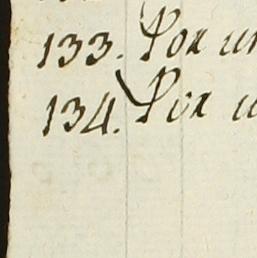 133. Por un
134. Por u